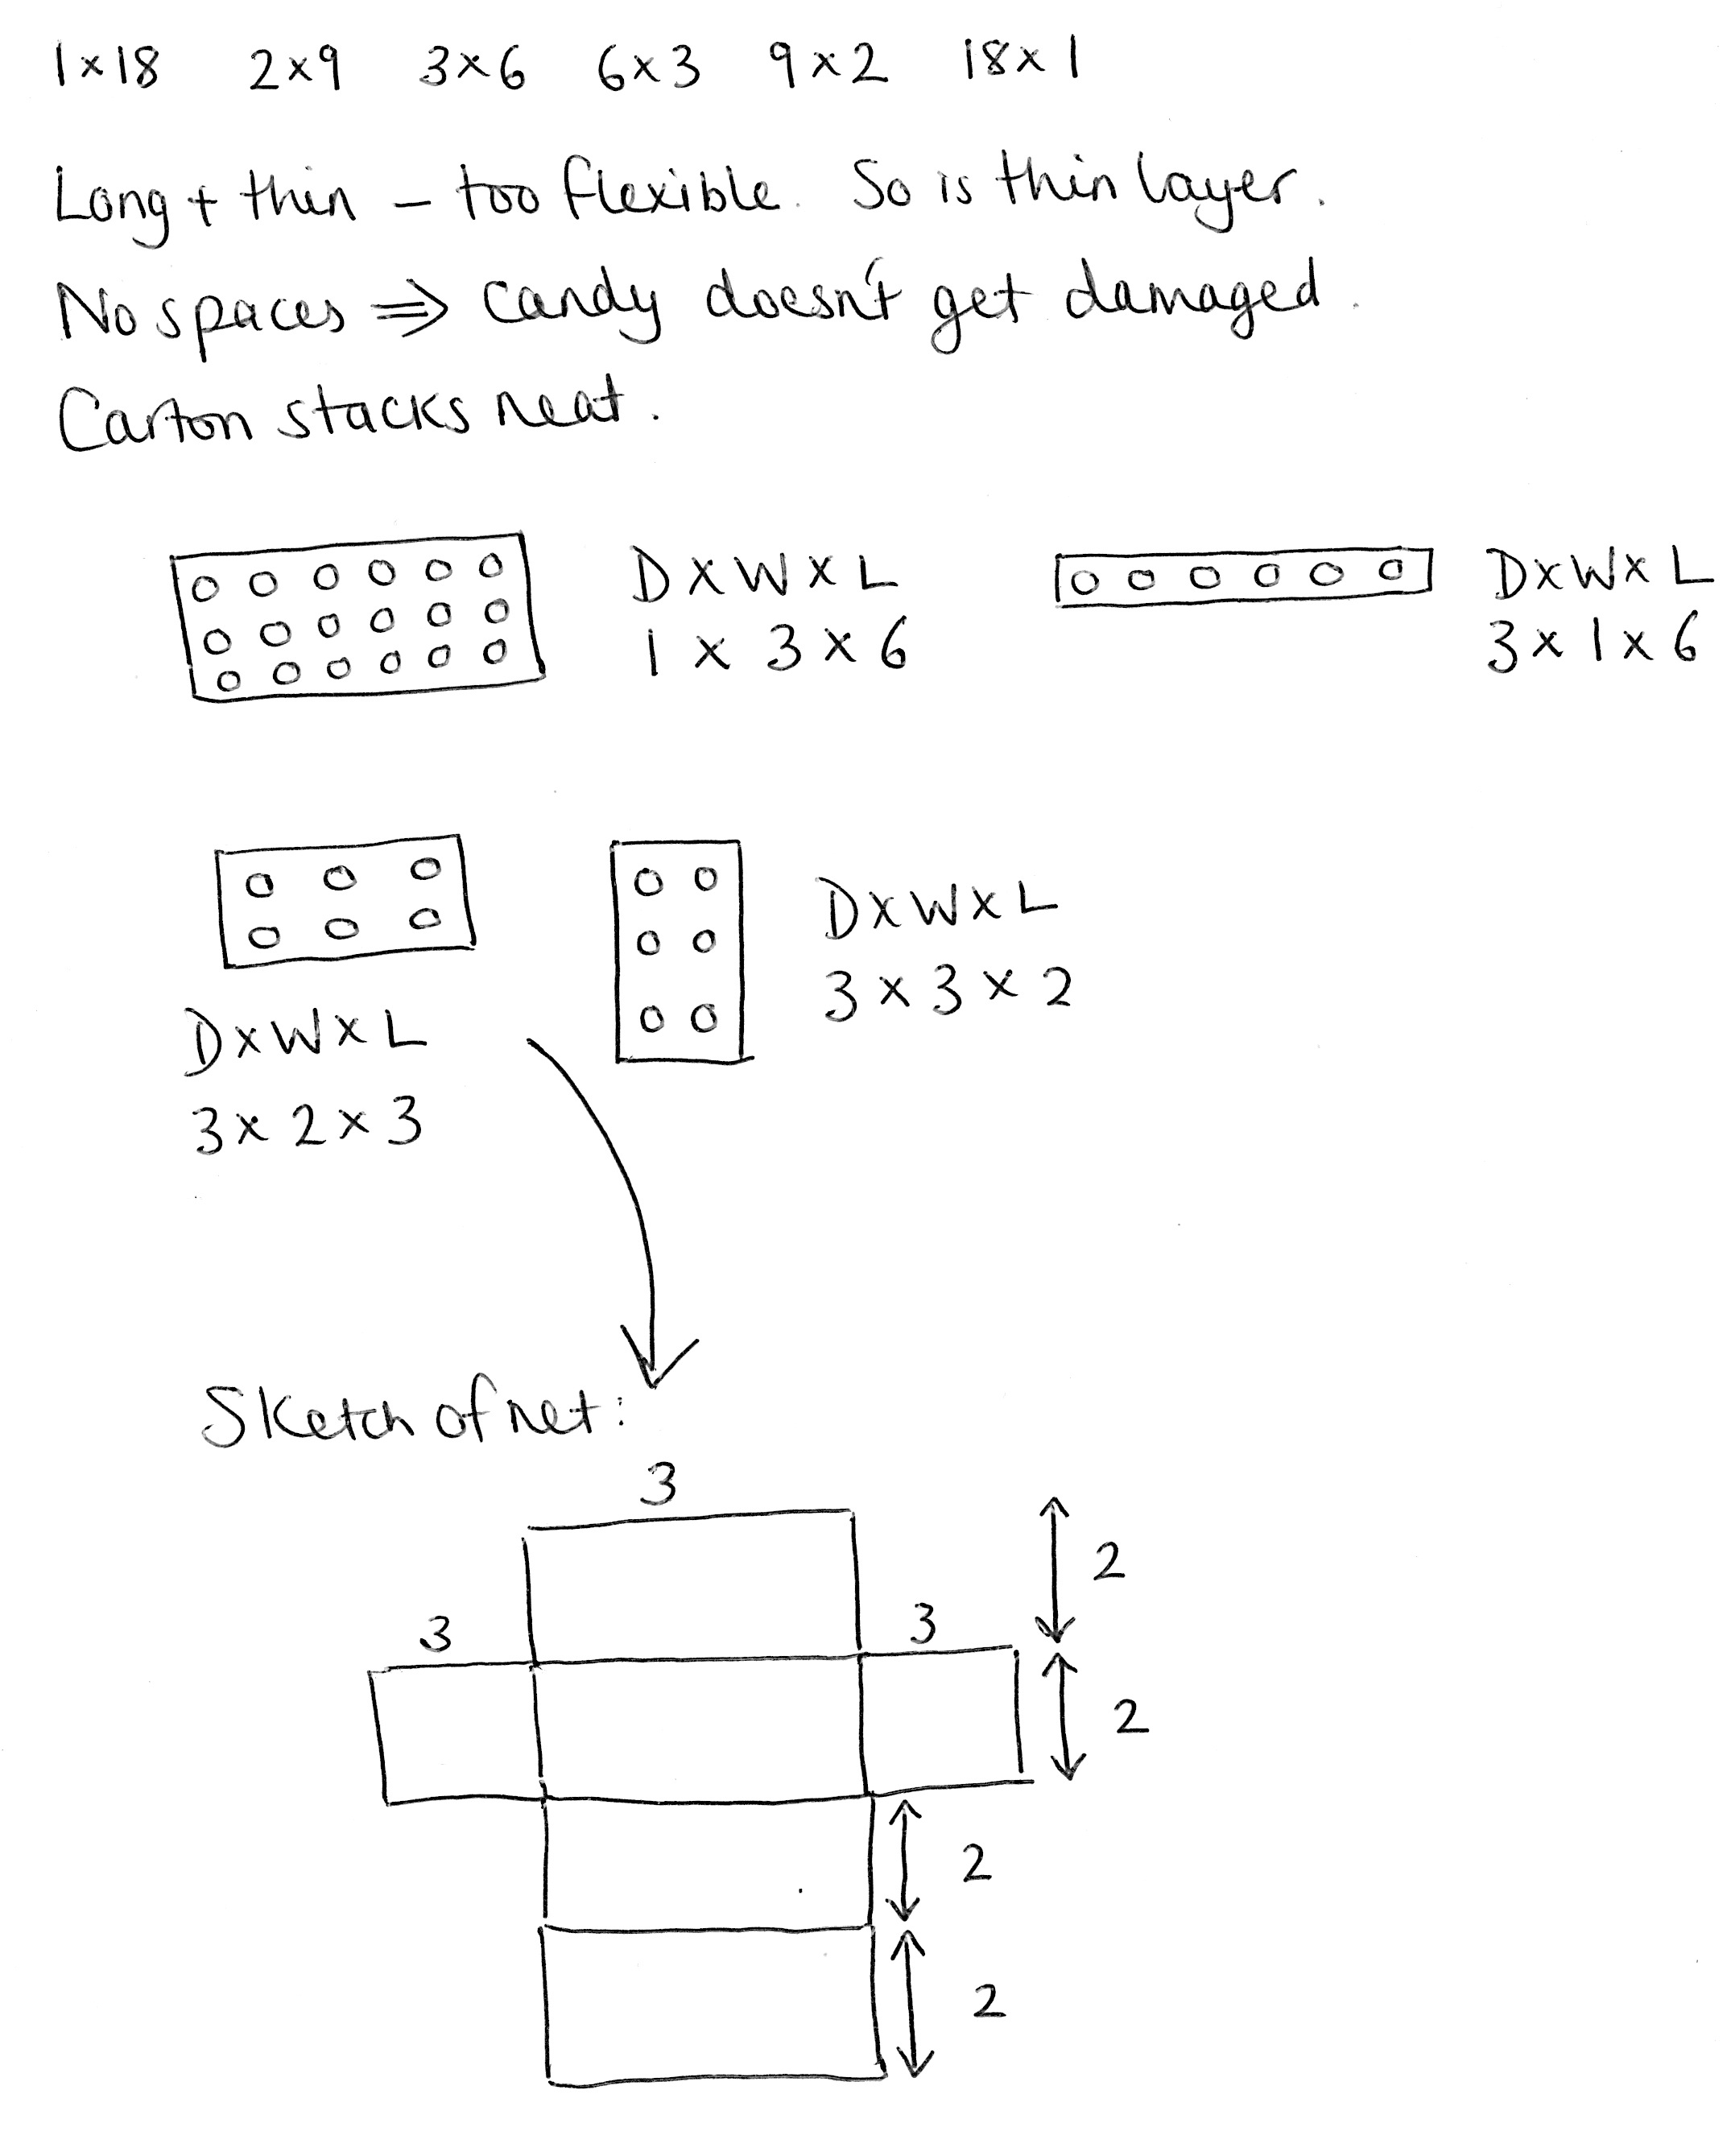 1×18 2×9 3×6 6×3 9×2 18×1
Long + thin – too flexible. So is thin layer.
No spaces ⇒ candy doesn't get damaged.
Carton stacks neat.
D×W×L
1×3×6
D×W×L
3×1×6
D×W×L
3×3×2
D×W×L
3×2×3
Sketch of net:
3
2
3
3
2
2
2